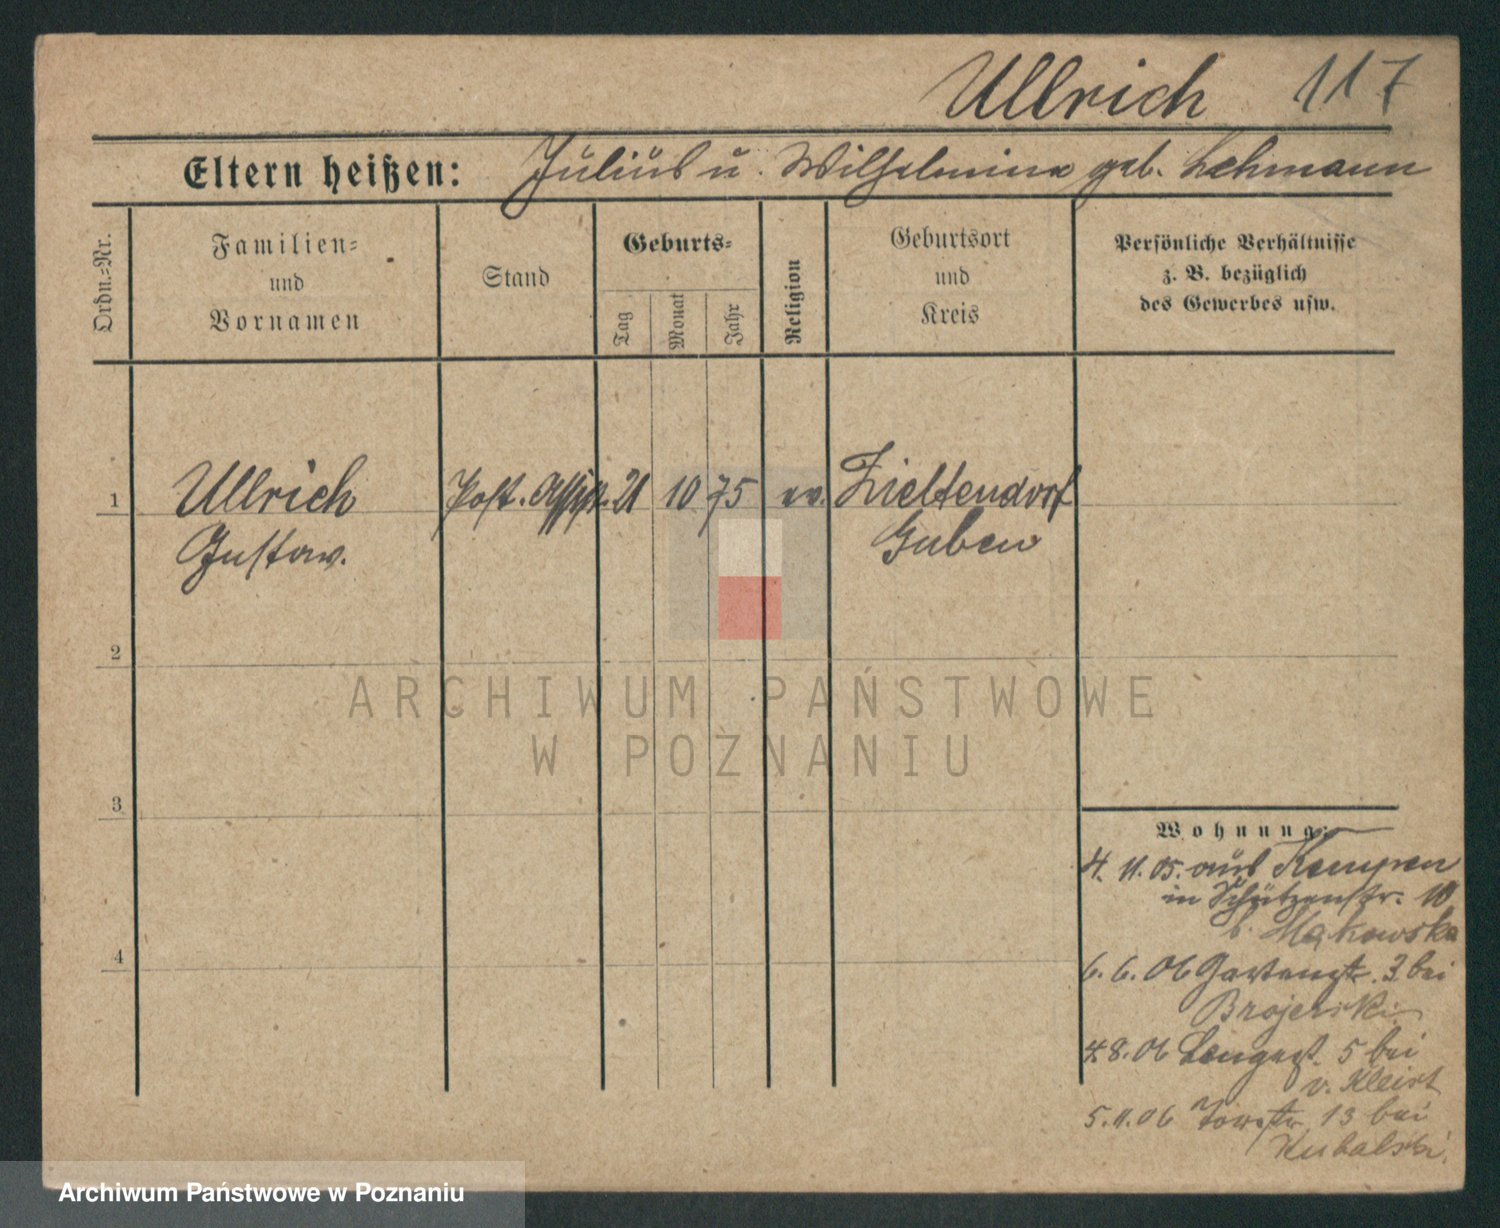 Ullrich 117
Eltern heißen: Julius u. Wilhelmine geb. Lehmann
Ordn.-Nr.
Familien-
und
Vornamen
Stand
Geburts-
Tag
Monat
Jahr
Religion
Geburtsort
und
Kreis
Persönliche Verhältnisse
z. B. bezüglich
des Gewerbes usw.
1 Ullrich Post. Assist. 21 10 75 ev. Zieltendorf
Gustav. Guben
2
3
4
Wohnung:
4. 11. 05. aus Kempen
in Schützenstr. 10
b. Makowska
6. 6. 06 Gartenstr. 3 bei
Brojerski
4. 8. 06 Langest. 5 bei
v. Kleist
5. 11. 06 13 bei
Kubalski.
ARCHIWUM PAŃSTWOWE
W POZNANIU
Archiwum Państwowe w Poznaniu